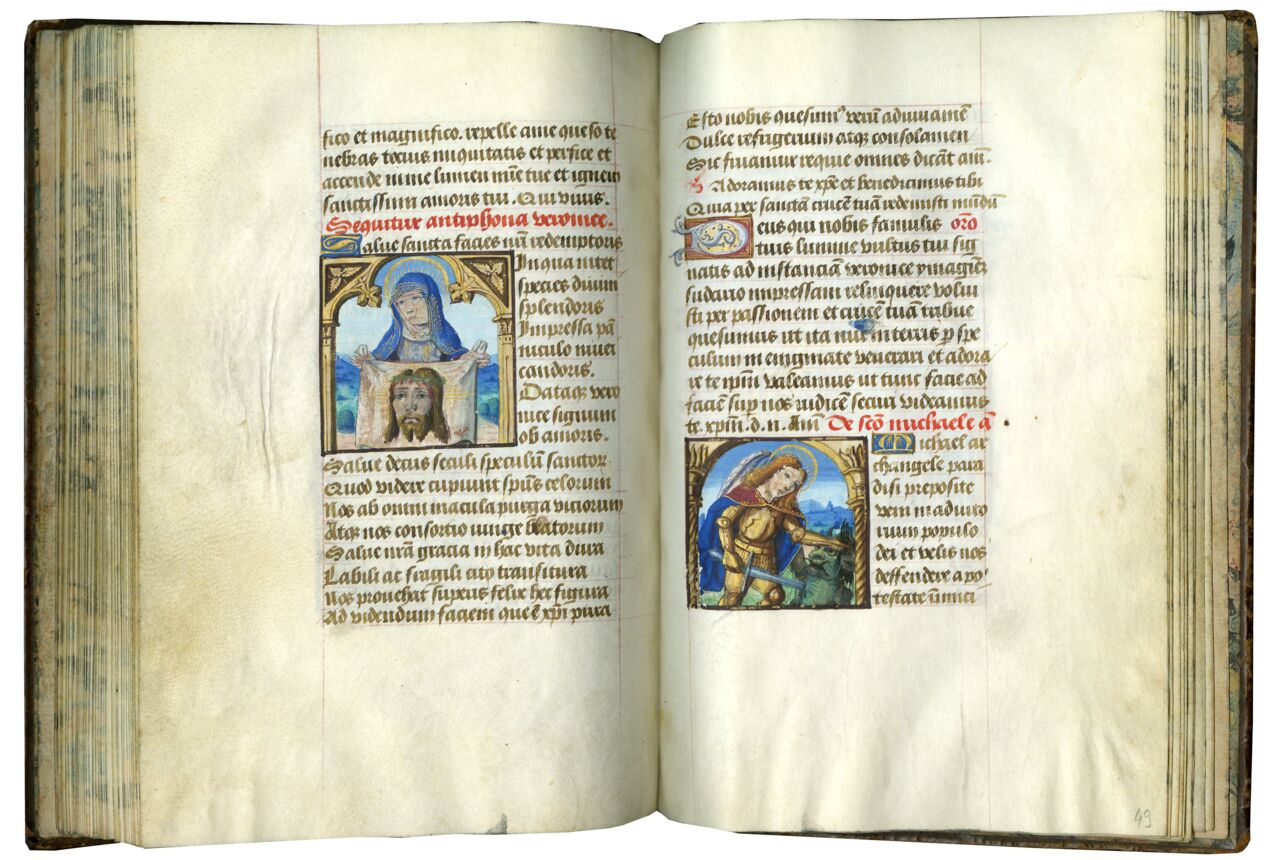 fico et magnifico. repelle a me queso te
nebras tocius iniquitatis et perfice et
accende in me lumen mē tue et ignem
sanctissimi amoris tui. Qui viuis.
Sequitur antiphona veronice.
Salue sancta facies nr̄i redemptoris
In qua nitet
species diuini
splendoris
Impressa pā
niculo niuei
candoris.
Dataq; vero
nice signum
ob amoris.
Salue decus seculi speculū sanctor
Quod videre cupiunt spūs celorum
Nos ab omni macula purga viciorum
Atq; nos consortio iunge beatorum
Salue nr̄a gracia in hac vita dura
Labili ac fragili cito transitura
Nos prouehat superis felix hec figura
Ad videndum faciem que ē xp̄i pura
Esto nobis quesumꝰ verū adiuuamē
Dulce refrigerium atq; consolamen
Sic fruamur requie omnes dicāt am̄.
Adoramus te xp̄e et benedicimus tibi
Quia per sanctā crucē tuā redemisti mūdū
Deus qui nobis famulis oro
tuis lumine vultus tui sig
natis ad instanciā veronice ymaginē
sudario impressam relinquere volui
sti per passionem et crucē tuā tribue
quesumus ut ita nūc in terris p spe
culum in enigmate venerari et adora
re te ip̄m valeamus ut tunc facie ad
faciē sup nos iudicē securi videamus
te. xp̄m. d. n. Am̄ De sc̄o michaele a͠
Michael ar
changele para
disi preposite
veni in adiuto
rium populo
dei et velis nos
deffendere a po
testate inimici
49